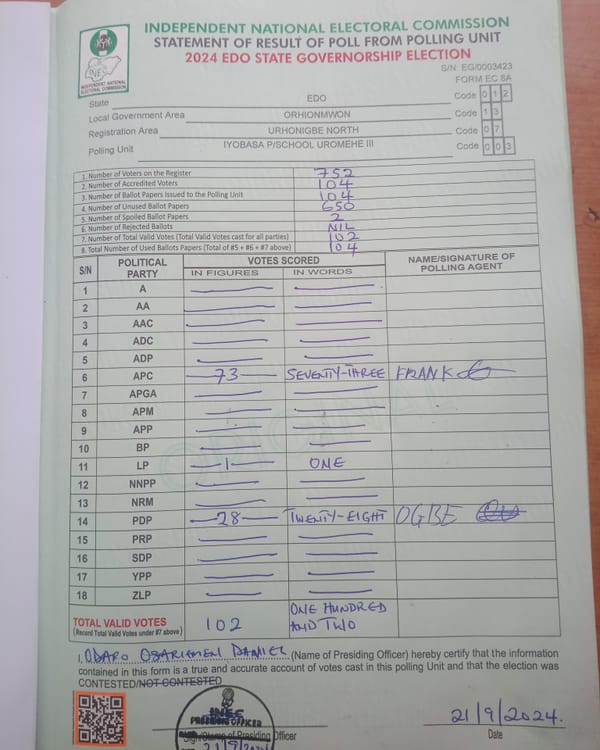 INDEPENDENT NATIONAL ELECTORAL COMMISSION
STATEMENT OF RESULT OF POLL FROM POLLING UNIT
2024 EDO STATE GOVERNORSHIP ELECTION
INEC
INDEPENDENT NATIONAL
ELECTORAL COMMISSION
S/N: EG/0003423
FORM EC 8A
State EDO Code 0 1 2
Local Government Area ORHIONMWON Code 1 3
Registration Area URHONIGBE NORTH Code 0 7
Polling Unit IYOBASA P/SCHOOL UROMEHE III Code 0 0 3
1. Number of Voters on the Register 752
2. Number of Accredited Voters 104
3. Number of Ballot Papers Issued to the Polling Unit 104
4. Number of Unused Ballot Papers 650
5. Number of Spoiled Ballot Papers 2
6. Number of Rejected Ballots NIL
7. Number of Total Valid Votes (Total Valid Votes cast for all parties) 102
8. Total Number of Used Ballots Papers (Total of #5 + #6 + #7 above) 104
S/N POLITICAL PARTY VOTES SCORED NAME/SIGNATURE OF POLLING AGENT
IN FIGURES IN WORDS
1 A
2 AA
3 AAC
4 ADC
5 ADP
6 APC 73 SEVENTY-THREE FRANK
7 APGA
8 APM
9 APP
10 BP
11 LP 1 ONE
12 NNPP
13 NRM
14 PDP 28 TWENTY-EIGHT OGBE
15 PRP
16 SDP
17 YPP
18 ZLP
TOTAL VALID VOTES 102 ONE HUNDRED AND TWO
(Record Total Valid Votes under #7 above)
I, ODARO OSARIEMEN DANIEL (Name of Presiding Officer) hereby certify that the information
contained in this form is a true and accurate account of votes cast in this polling Unit and that the election was
CONTESTED/NOT CONTESTED
INEC
PRESIDING OFFICER
Sign/Stamp of Presiding Officer
21/9/2024
21/9/2024.
Date